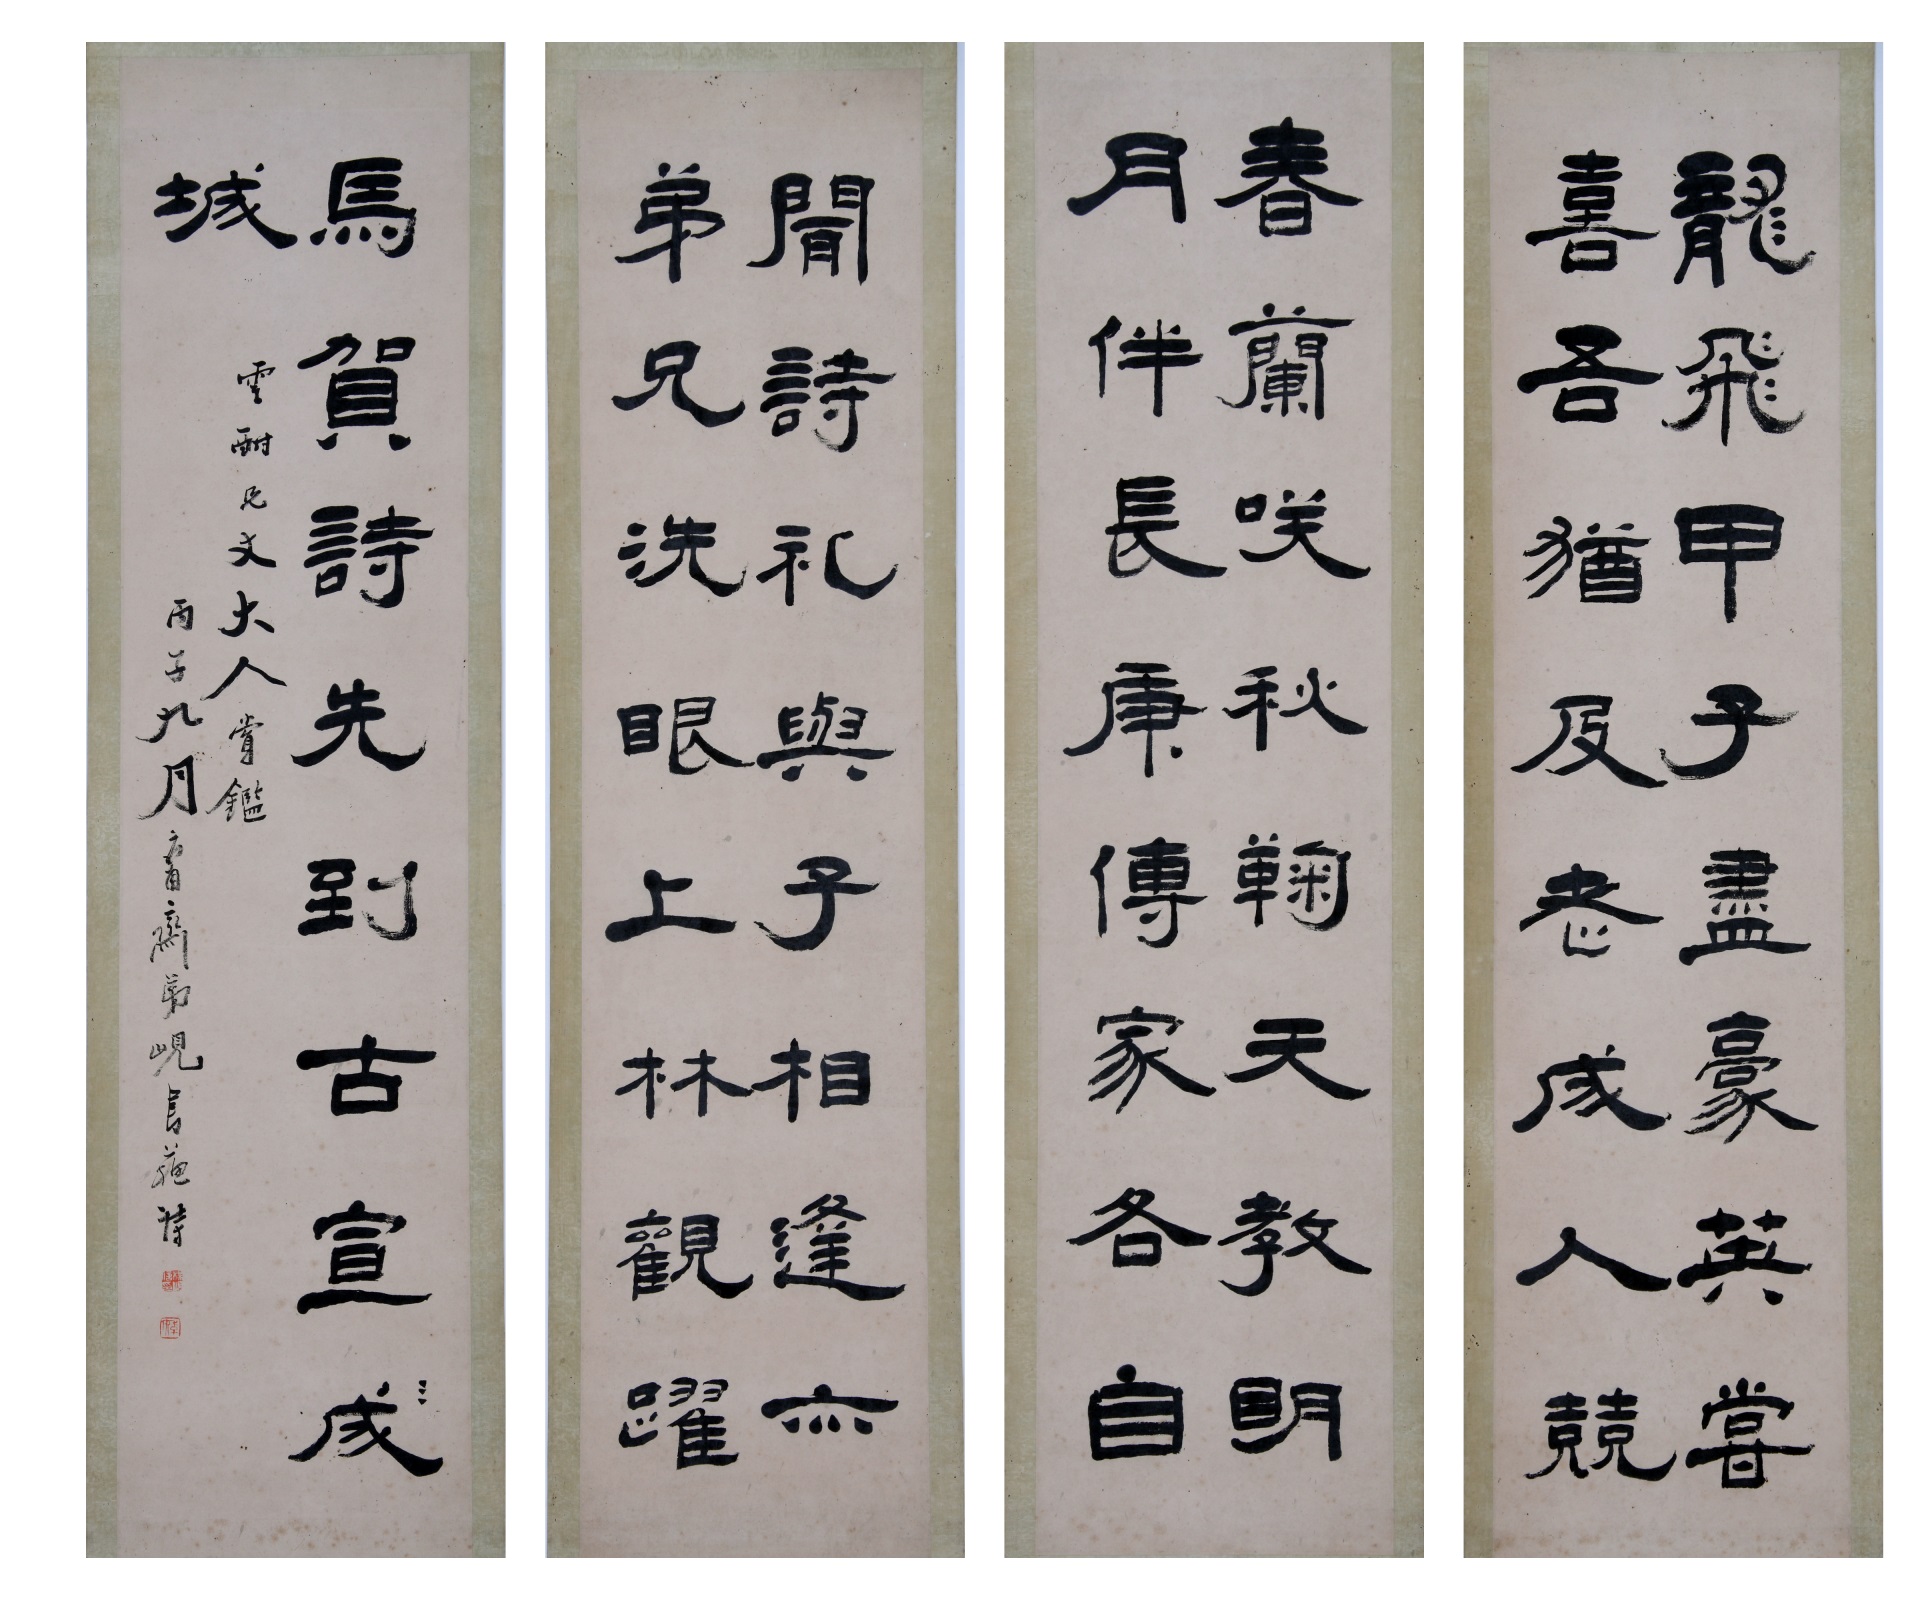 龍飛甲子盡豪英嘗
喜吾猶及老成人競
春蘭咲秋鞠天教明
月伴長庚傳家各自
聞詩礼與子相逢亦
弟兄洗眼上林觀躍
馬賀詩先到古宣成
城
雲酣兄丈大人賞鑑
丙子九月庸齋弟峴書蘇詩